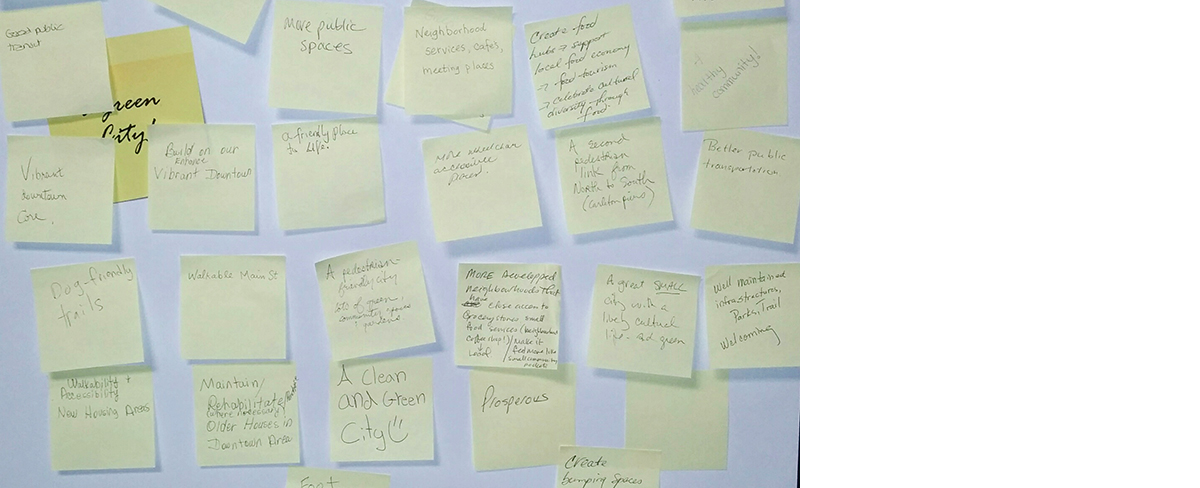 Good public
transit
green
City!
More public
spaces
Neighborhood
services, cafes,
meeting places
Create food
hubs → support
local food economy
→ food tourism
→ celebrate cultural
diversity through
food.
healthy
community!
Vibrant
downtown
Core.
Build on our
Enhance
Vibrant Downtown
a friendly place
to life.
More wheelchair
accessible
A second
pedestrian
link from
North to South
(carleton piers)
Better public
transportation
Dog-friendly
trails
Walkable Main St
A pedestrian-
friendly city
lots of green,
community spaces
gardens
MORE Developed
neighbourhoods that
have close access to
Grocery stores small
food services (neighbourhood
coffee shop!)/make it
feel more like
small community
A great SMALL
city with a
lively cultural
life - and green
Well maintained
infrastructures,
Parks, Trail
Welcoming
Walkability +
Accessibility
New Housing Areas
Maintain/
Rehabilitate/
(where necessary)
Older Houses in
Downtown Area
A Clean
and Green
City
Prosperous
Create
bumping spaces